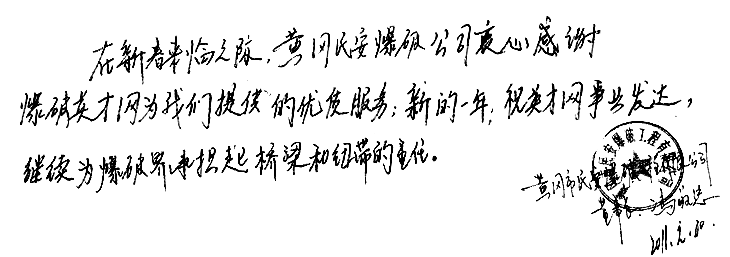 在新春来临之际，黄冈民安爆破公司衷心感谢
爆破英才网为我们提供的优质服务；新的一年，祝英才网事业发达，
继续为爆破界承担起桥梁和纽带的重任。
黄冈市民安爆破工程有限公司
董事长：冯
2011.元.30.